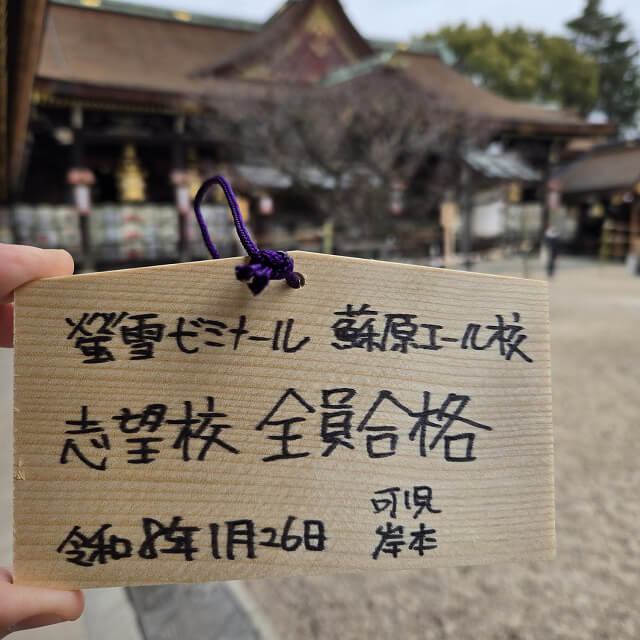 螢雪ゼミナール 蘇原エール校
志望校 全員合格
令和8年1月26日
可児
岸本